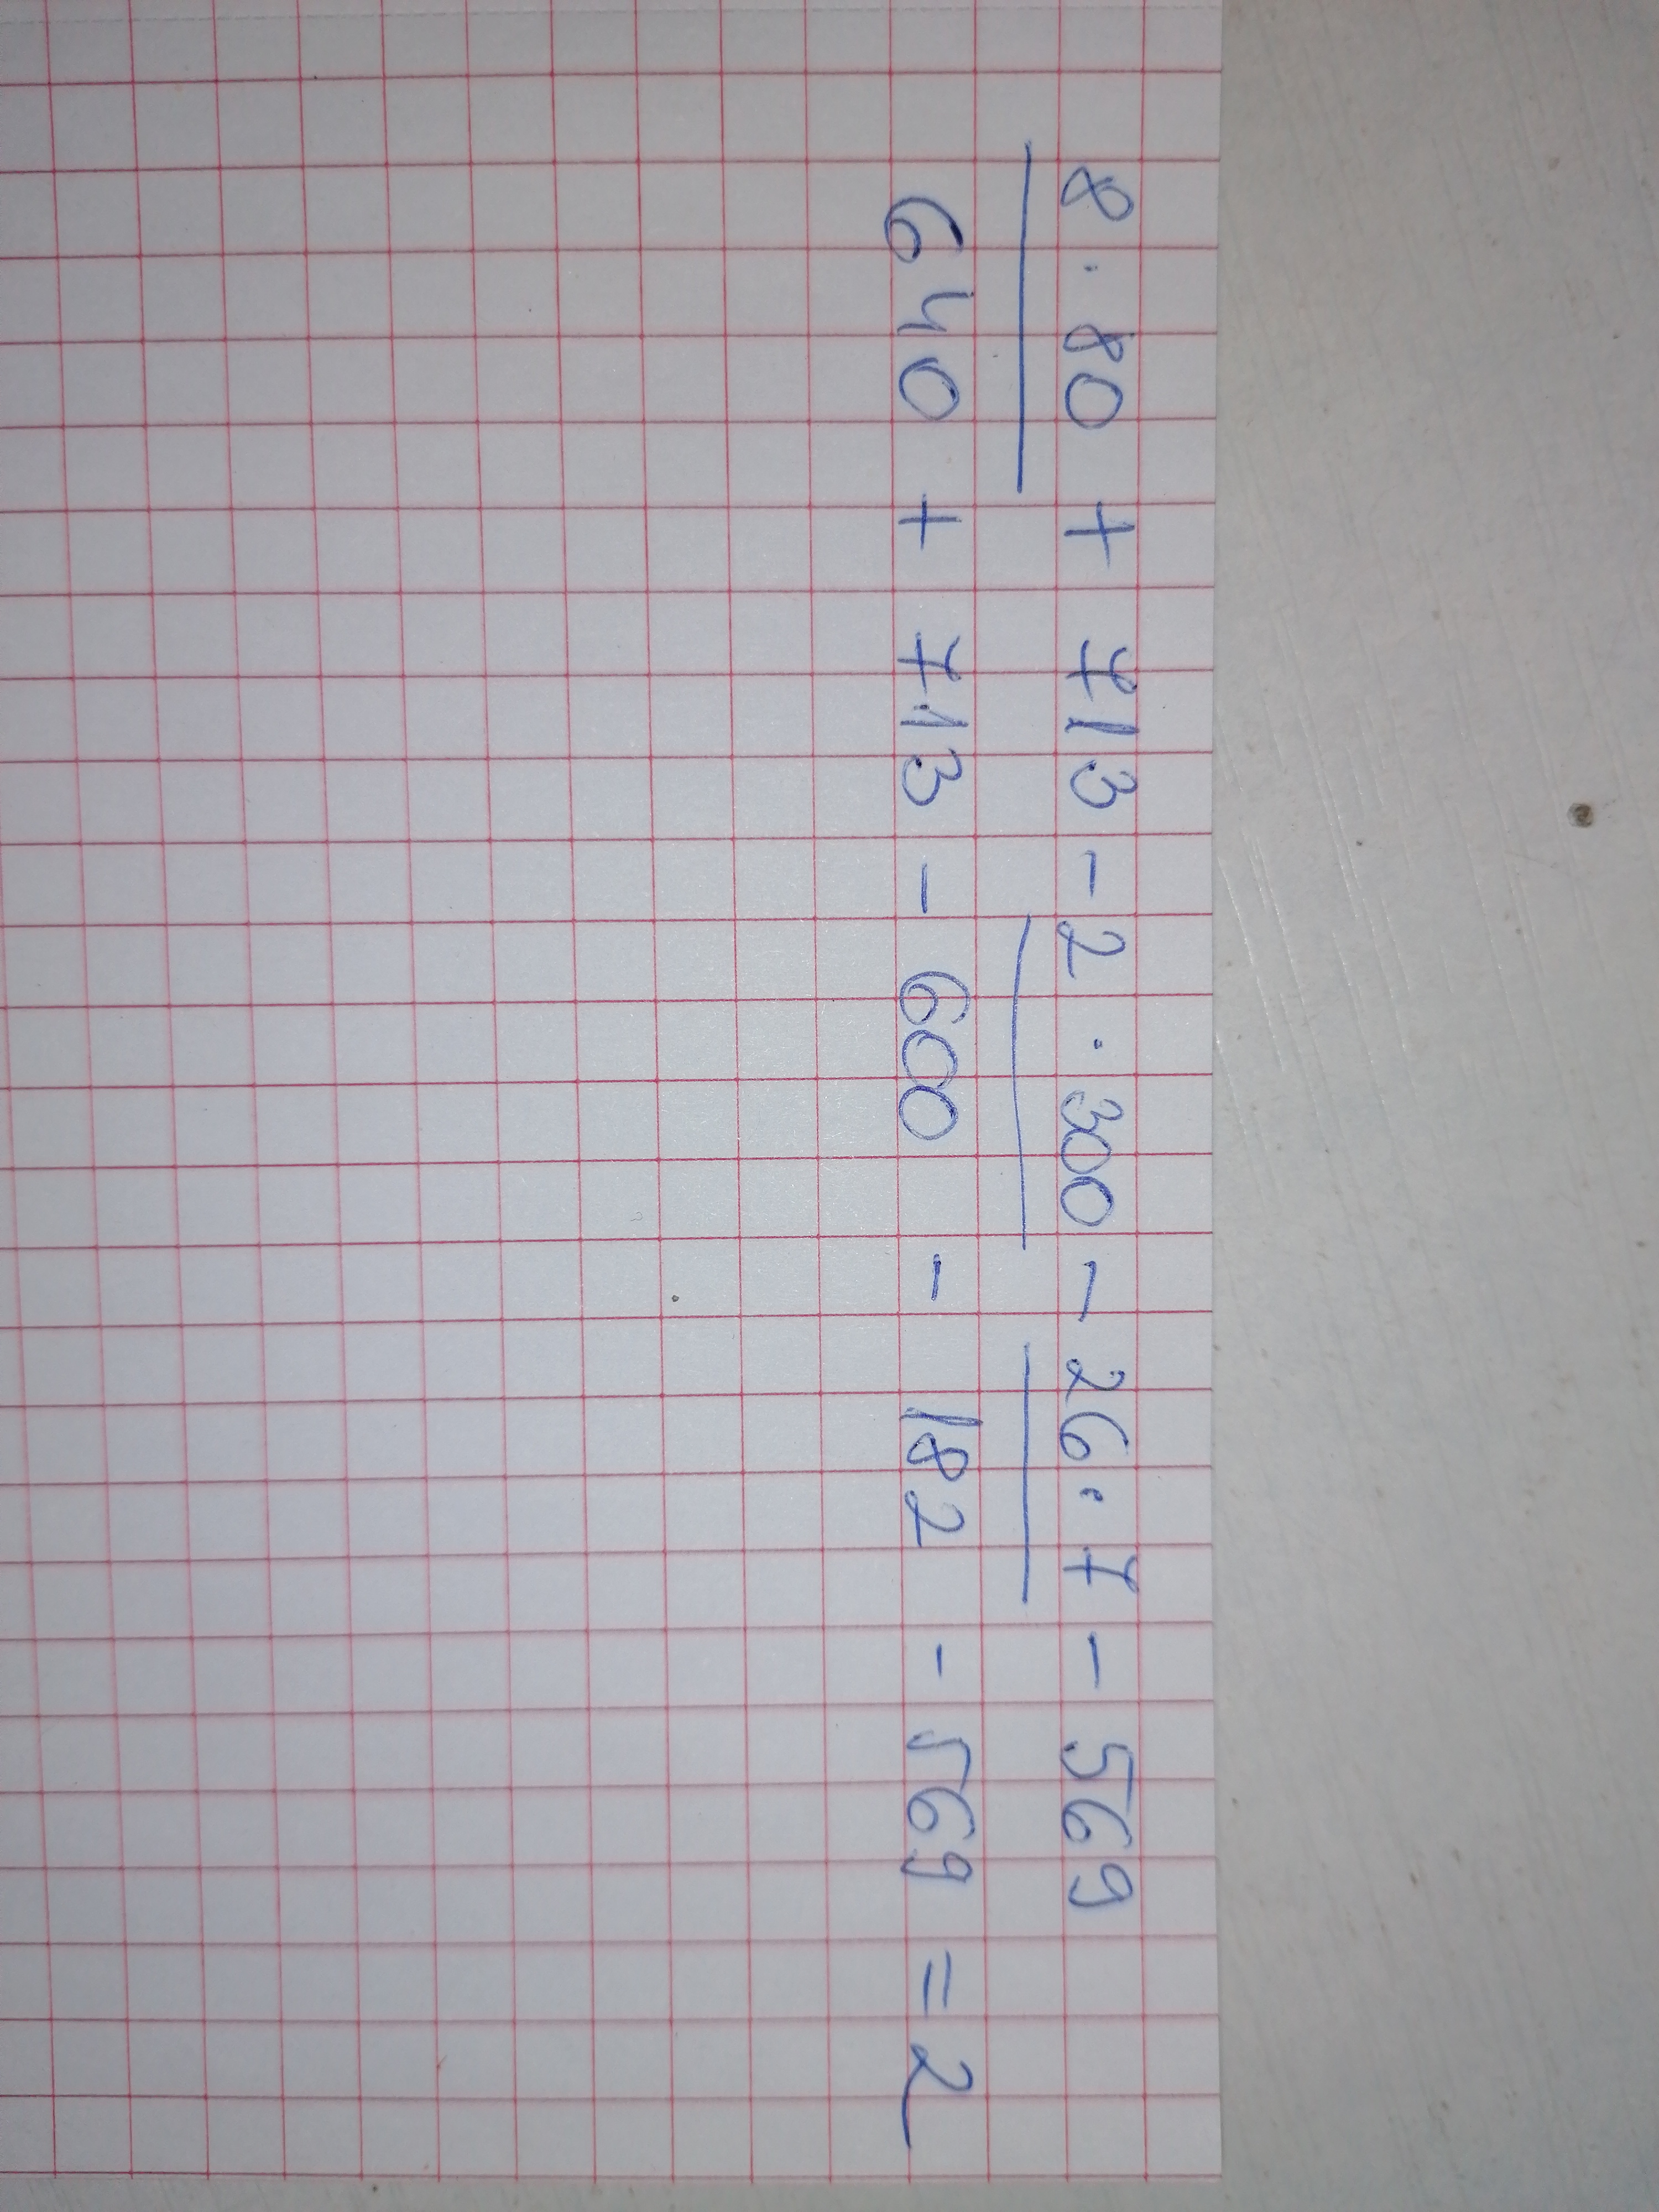 8 · 80 + 713 - 2 · 300 - 26 · 7 - 569
640 + 713 - 600 - 182 - 569 = 2